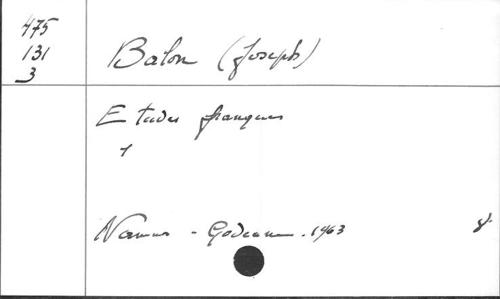 475
131
3
Balon (Joseph)
Etudes franques
1
Namur - Godenne. 1963
8°